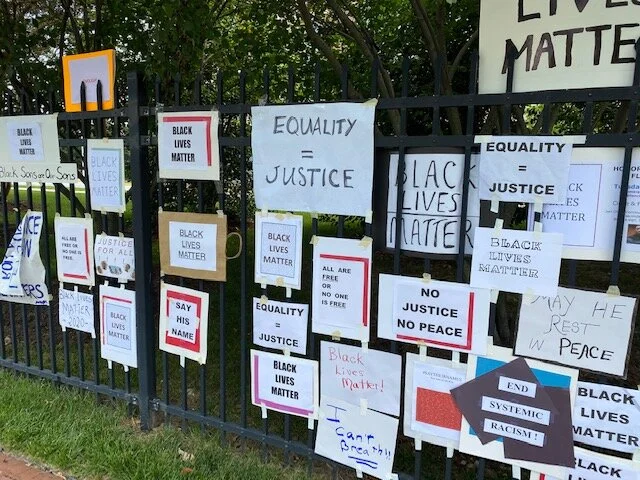 LIVES
MATTE
BLACK
LIVES
MATTER
Black Sons are Our Sons
BLACK
LIVES
MATTER
BLACK
LIVES
MATTER
EQUALITY
=
JUSTICE
BLACK
LIVES
MATTER
EQUALITY
=
JUSTICE
LIVES
MATTER
HONOR
ALL ARE
FREE OR
NO ONE IS
FREE
JUSTICE
FOR ALL
BLACK
LIVES
MATTER
BLACK
LIVES
MATTER
ALL ARE
FREE
OR
NO ONE
IS FREE
BLACK
LIVES
MATTER
BLACK LIVES
MATTER
2020
BLACK
LIVES
MATTER
SAY
HIS
NAME
EQUALITY
=
JUSTICE
NO
JUSTICE
NO PEACE
MAY HE
REST
IN PEACE
BLACK
LIVES
MATTER
Black
Lives
Matter!
END
SYSTEMIC
RACISM!
BLACK
LIVES
MATTER
I
Can't
Breath!!
BLACK
LIVES